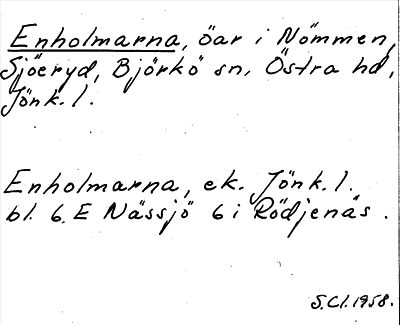 Enholmarna, öar i Nömmen,
Sjöeryd, Björkö sn, Östra hd,
Jönk. l.
Enholmarna, ek. Jönk. l.
bl. 6. E Nässjö 6 i Rödjenäs.
S.Cl. 1958.